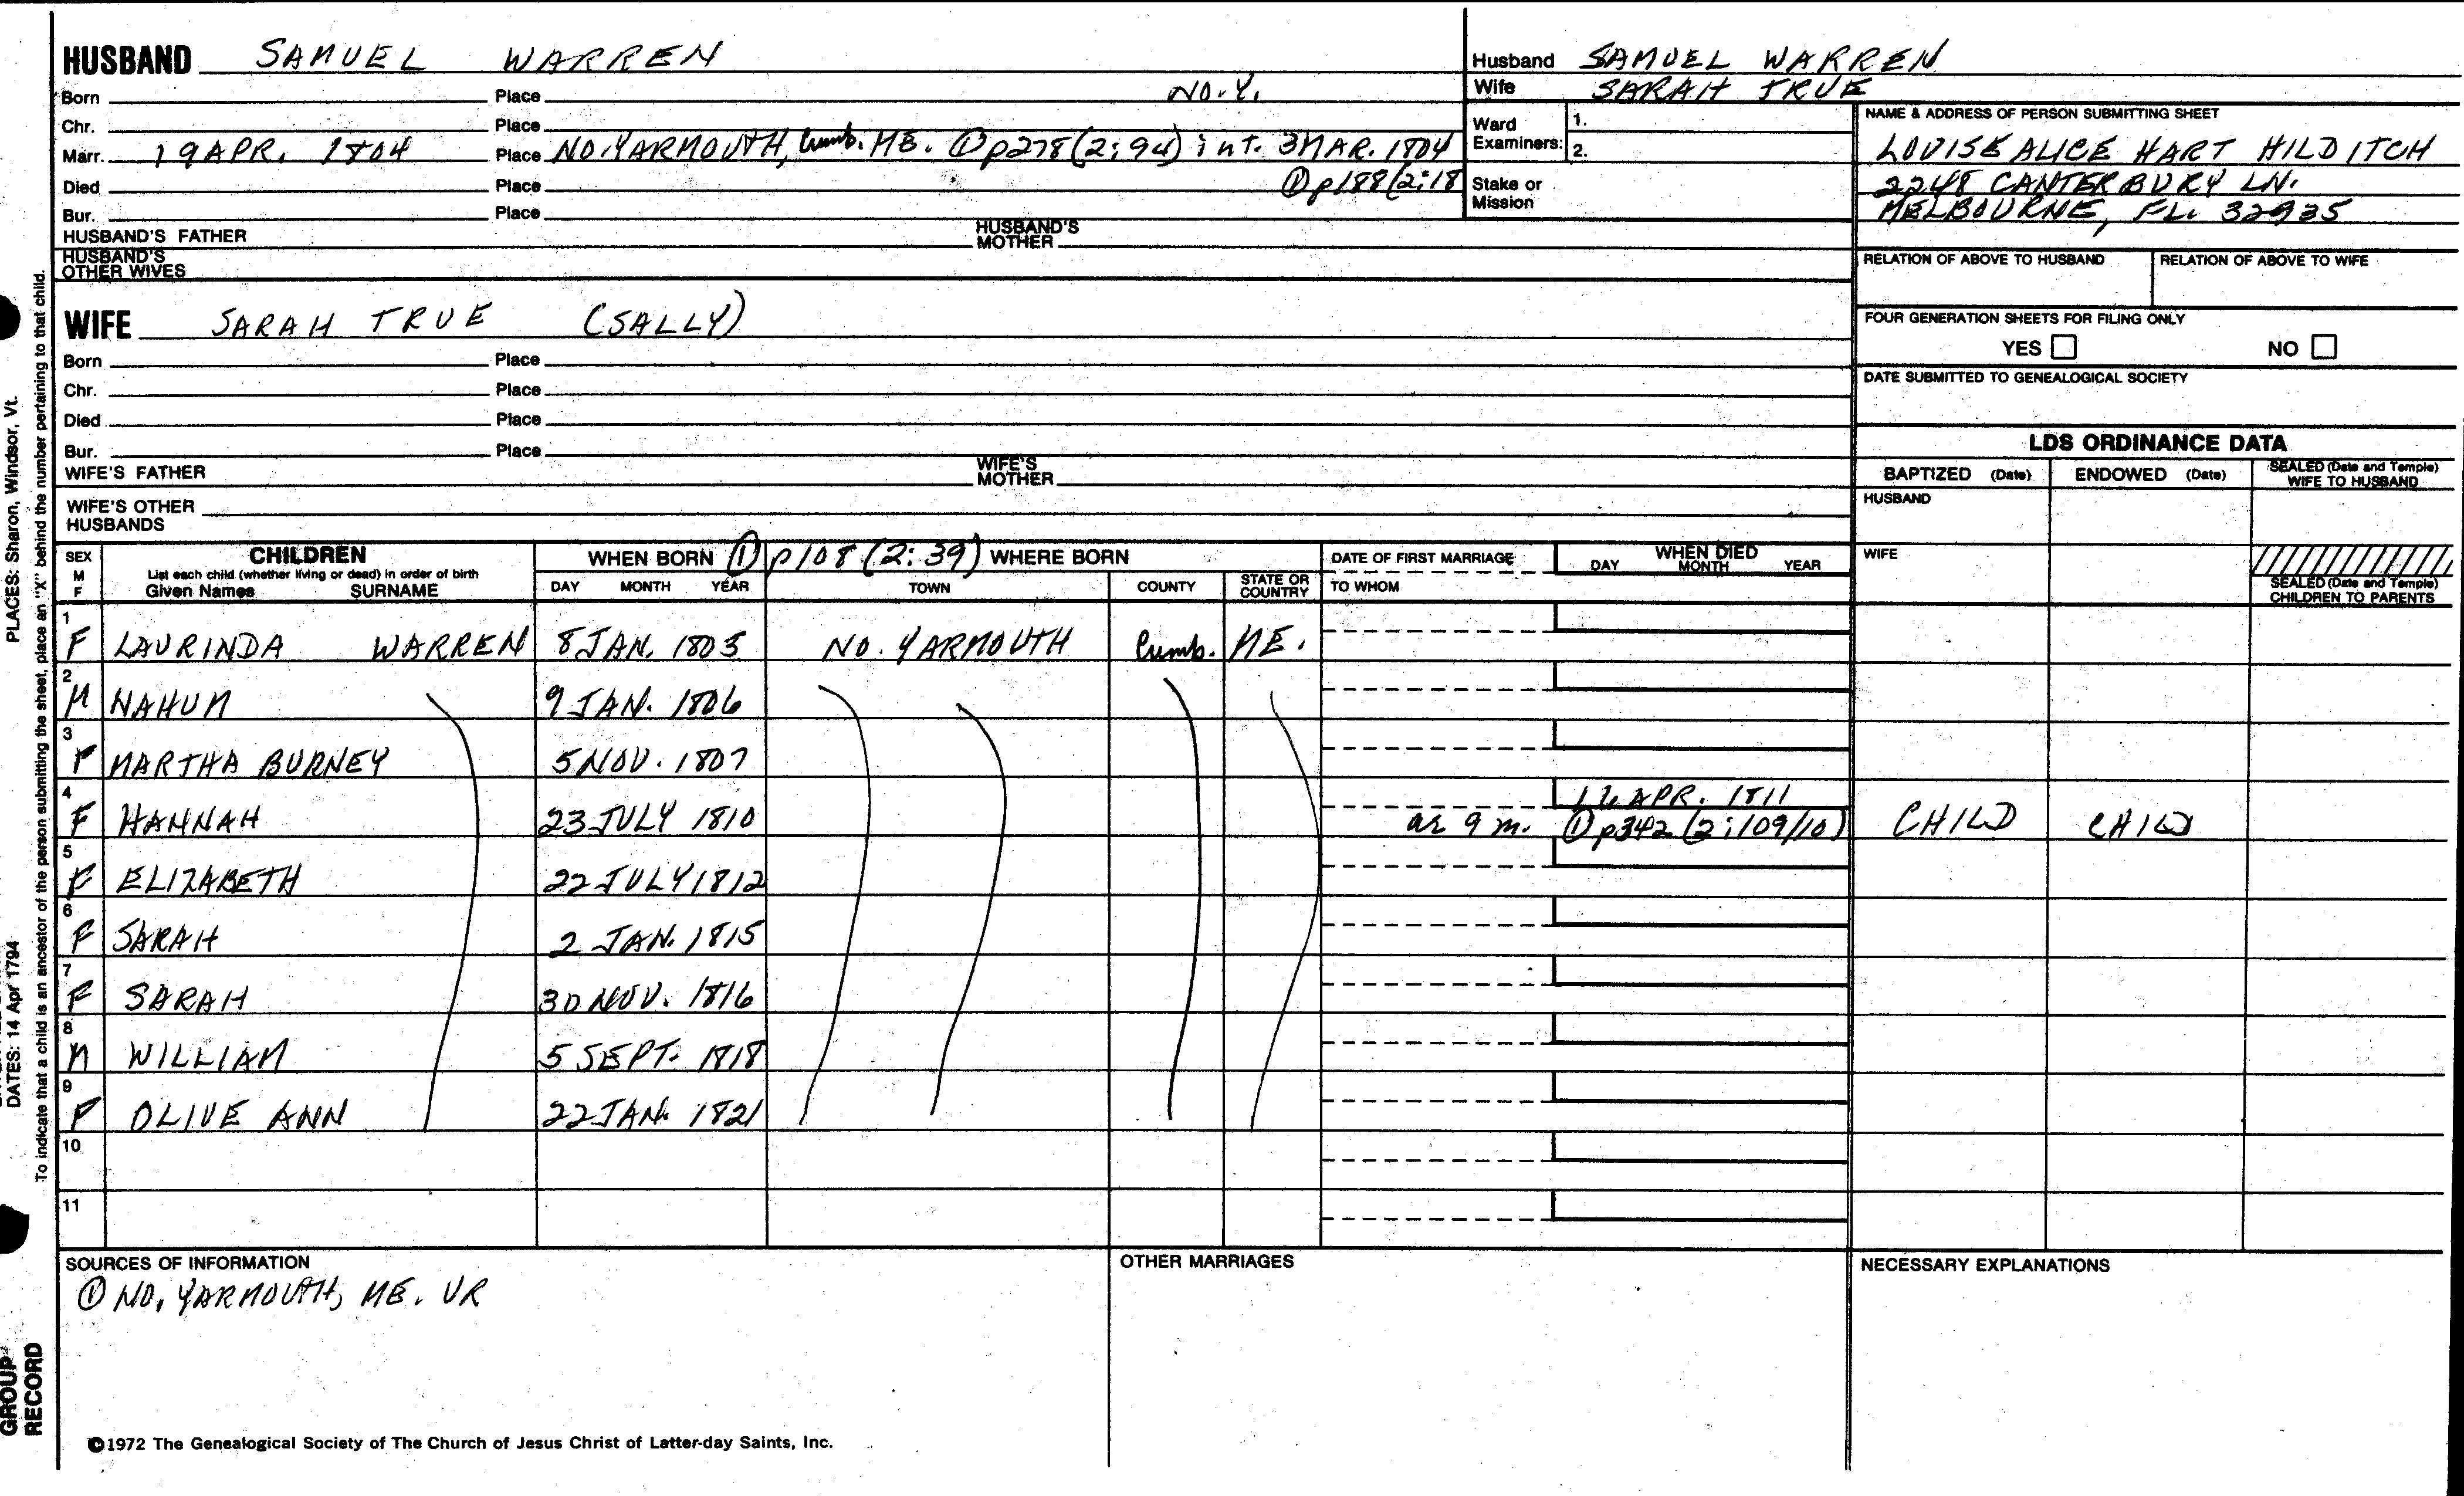 HUSBAND SAMUEL WARREN
Born Place NO. Y.
Chr. Place
Marr. 19 APR. 1804 Place NO. YARMOUTH, Cumb. ME. ① p278 (2:94) int. 3 MAR. 1804
Died Place ① p188 (2:18
Bur. Place
HUSBAND'S FATHER HUSBAND'S MOTHER
HUSBAND'S OTHER WIVES
Husband SAMUEL WARREN
Wife SARAH TRUE
Ward Examiners: 1.
2.
Stake or Mission
NAME & ADDRESS OF PERSON SUBMITTING SHEET
LOUISE ALICE HART HILDITCH
2248 CANTERBURY LN.
MELBOURNE, FL. 32935
RELATION OF ABOVE TO HUSBAND RELATION OF ABOVE TO WIFE
FOUR GENERATION SHEETS FOR FILING ONLY
YES NO
DATE SUBMITTED TO GENEALOGICAL SOCIETY
WIFE SARAH TRUE (SALLY)
Born Place
Chr. Place
Died Place
Bur. Place
WIFE'S FATHER WIFE'S MOTHER
WIFE'S OTHER HUSBANDS
LDS ORDINANCE DATA
BAPTIZED (Date) ENDOWED (Date) SEALED (Date and Temple) WIFE TO HUSBAND
HUSBAND
WIFE
SEALED (Date and Temple) CHILDREN TO PARENTS
SEX M F
CHILDREN
List each child (whether living or dead) in order of birth
Given Names SURNAME
WHEN BORN ① p108 (2:39) WHERE BORN
DAY MONTH YEAR TOWN COUNTY STATE OR COUNTRY
DATE OF FIRST MARRIAGE
TO WHOM
WHEN DIED
DAY MONTH YEAR
1 F LAURINDA WARREN 8 JAN. 1805 NO. YARMOUTH Cumb. ME.
2 M NAHUM 9 JAN. 1806
3 F MARTHA BURNEY 5 NOV. 1807
4 F HANNAH 23 JULY 1810 ae 9 m. APR. 1811 ① p342 (2:109/10) CHILD CHILD
5 F ELIZABETH 22 JULY 1812
6 F SARAH 2 JAN. 1815
7 F SARAH 30 NOV. 1816
8 M WILLIAM 5 SEPT. 1818
9 F OLIVE ANN 22 JAN. 1821
10
11
SOURCES OF INFORMATION
① NO. YARMOUTH, ME. VR
OTHER MARRIAGES
NECESSARY EXPLANATIONS
©1972 The Genealogical Society of The Church of Jesus Christ of Latter-day Saints, Inc.
PLACES: Sharon, Windsor, Vt.
DATES: 14 Apr 1794
To indicate that a child is an ancestor of the person submitting the sheet, place an "X" behind the number pertaining to that child.
GROUP
RECORD